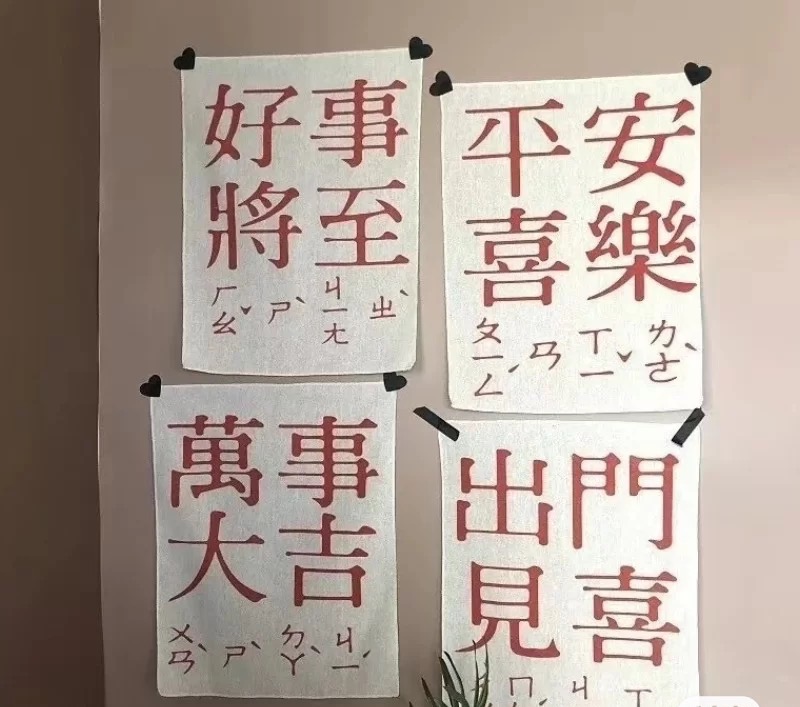 好事
將至
ㄏㄠˇ ㄕˋ ㄐㄧㄤ ㄓˋ
平安
喜樂
ㄆㄧㄥˊ ㄢ ㄒㄧˇ ㄌㄜˋ
萬事
大吉
ㄨㄢˋ ㄕˋ ㄉㄚˋ ㄐㄧˊ
出門
見喜
ㄇ ㄐ ㄒ